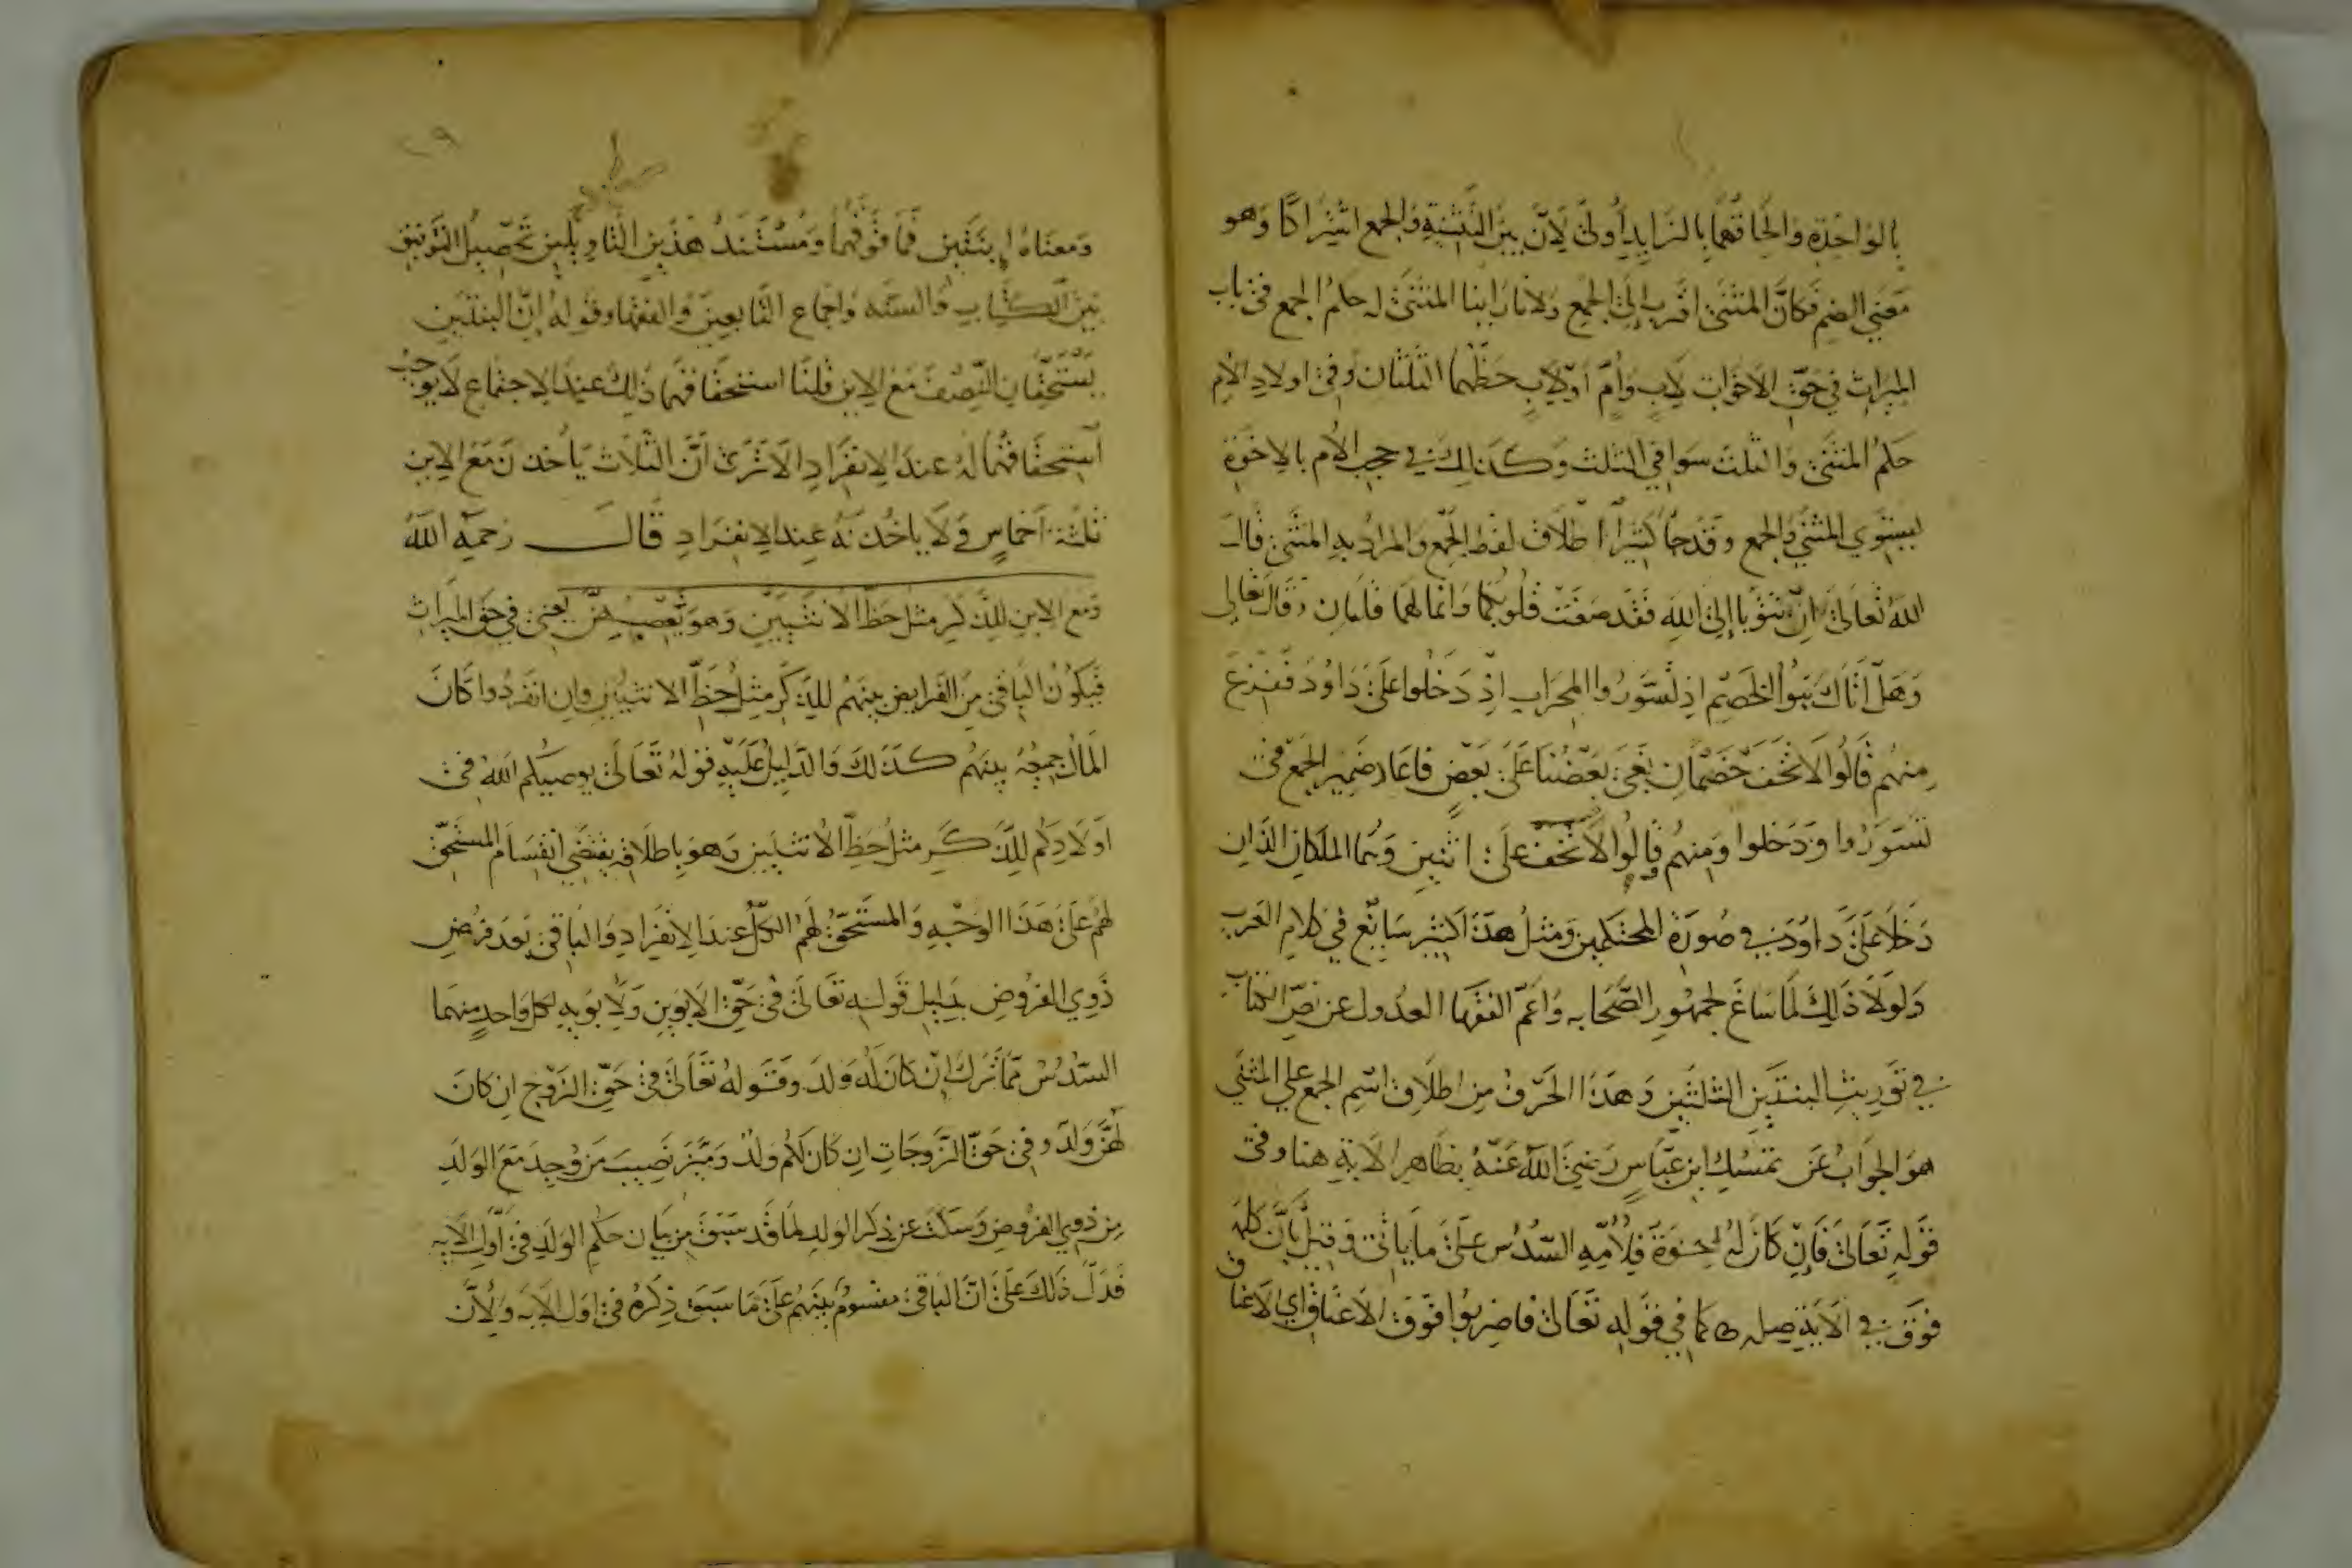 بالواحدة والحاقهما بالزايد أولى لأن بين التثنية والجمع اشتراكا وهو
معنى الضم فكان المثنى اقرب إلى الجمع ولانا راينا المثنى له حكم الجمع في باب
الميراث في حق الاخوات لاب وأم أو لاب حظهما الثلثان وفي اولاد الام
حكم المثنى والثلث سوا في الثلث وكذلك في حجب الأم بالاخوة
يستوي المثنى والجمع وقد جا كثيرا اطلاق لفظ الجمع والمراد به المثنى قال
الله تعالى ان تتوبا إلى الله فقد صغت قلوبكما وانما لهما قلبان وقال تعالى
وهل اتاك نبوا الخصم اذ تسوروا المحراب اذ دخلوا على داود ففزع
منهم قالوا لا تخف خصمان بغى بعضنا على بعض فاعاد ضمير الجمع في
تسوروا ودخلوا ومنهم قالوا لا تخف على اثنين وهما الملكان الذان
دخلا على داود في صورة المحتكمين ومثل هذا كثير سايغ في كلام العرب
ولولا ذلك لما ساغ لجمهور الصحابه واعم الفقها العدول عن نص الكتاب
في توريث البنتين الثلثين وهذا الحرف من اطلاق اسم الجمع علي المثنى
هو الجواب عن تمسك ابن عباس رضي الله عنه بظاهر الاية هنا وفي
قوله تعالى فإن كان له اخوة فلامه السدس على ما ياتي وقيل بأن كلمه
فوق في الاية صله كما في قوله تعالى فاضربوا فوق الاعناق اي الاعناق
٢٩
ومعناه إن اثنتين فما فوقهما ومستند هذين التاويلين تحصيل التوفيق
بين الكتاب والسنه واجماع التابعين والفقها وقوله إن البنتين
يستحقان النصف مع الابن قلنا استحقاقهما ذلك عند الاجتماع لا يوجب
استحقاقهما له عند الانفراد الا ترى أن الثلاث ياخذن مع الابن
ثلثة أخماس ولا ياخذنه عند الانفراد قال رحمه الله
ومع الابن للذكر مثل حظ الانثيين وهو يعصبهن يعني في حق الميراث
فيكون الباقي من الفرايض بينهم للذكر مثل حظ الانثيين وان انفردوا كان
المال جميعه بينهم كذلك والدليل عليه قوله تعالى يوصيكم الله في
اولادكم للذكر مثل حظ الانثيين وهو باطلاقه يقتضي انقسام المستحق
لهم على هذا الوجه والمستحق لهم الكل عند الانفراد والباقي بعد فرض
ذوي الفروض بدليل قوله تعالى في حق الابوين ولأبويه لكل واحد منهما
السدس مما ترك إن كان له ولد وقوله تعالى في حق الزوج ان كان
لهن ولد وفي حق الزوجات ان كان لكم ولد وميز نصيب من وجد مع الولد
من ذوي الفروض وسكت عن ذكر الولد لما قد سبق من بيان حكم الولد في أول الايه
فدل ذلك على ان الباقي مقسوم بينهم على ما سبق ذكره في اول الايه ولأن